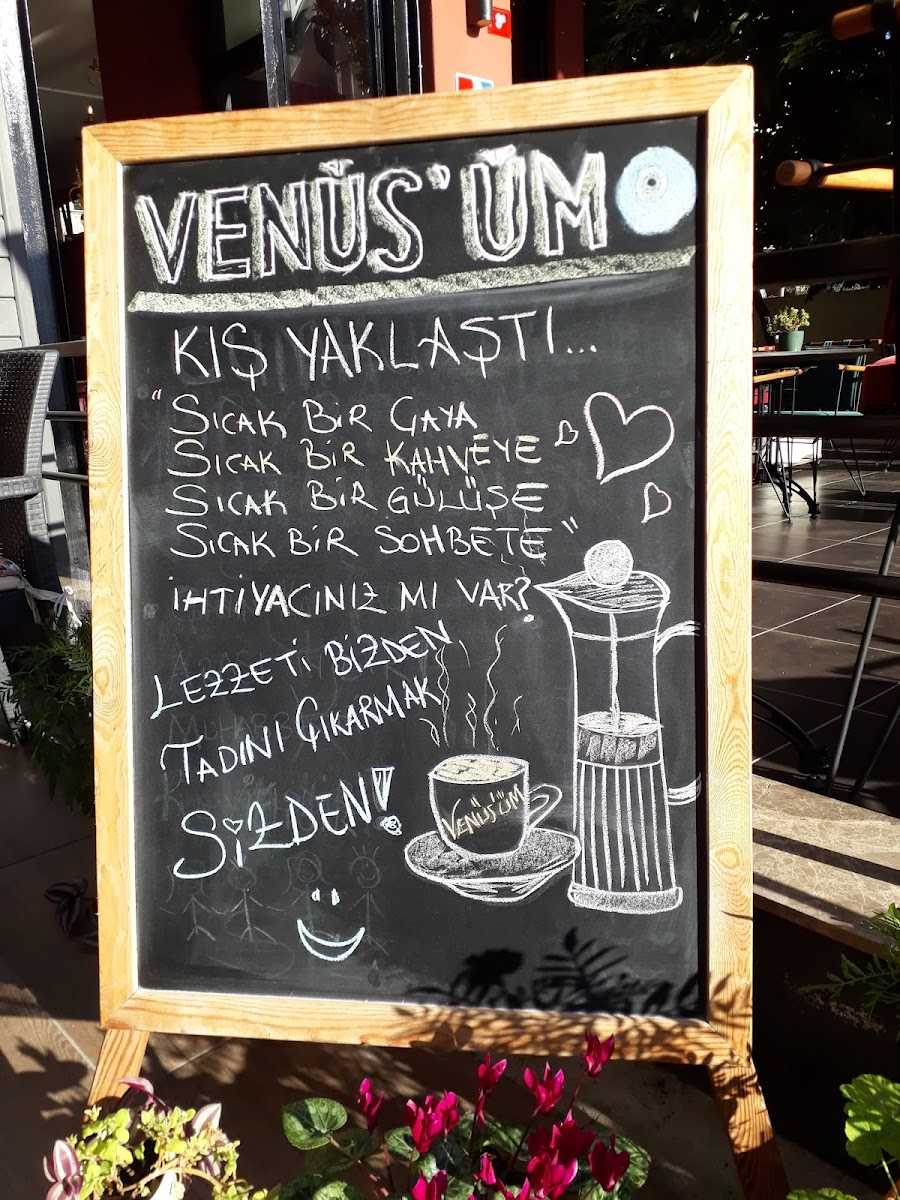 VENÜS'ÜM
KIŞ YAKLAŞTI...
"SICAK BİR ÇAYA
SICAK BİR KAHVEYE
SICAK BİR GÜLÜŞE
SICAK BİR SOHBETE"
İHTİYACINIZ MI VAR?
LEZZETİ BİZDEN,
TADINI ÇIKARMAK
SİZDEN!
VENÜS'ÜM